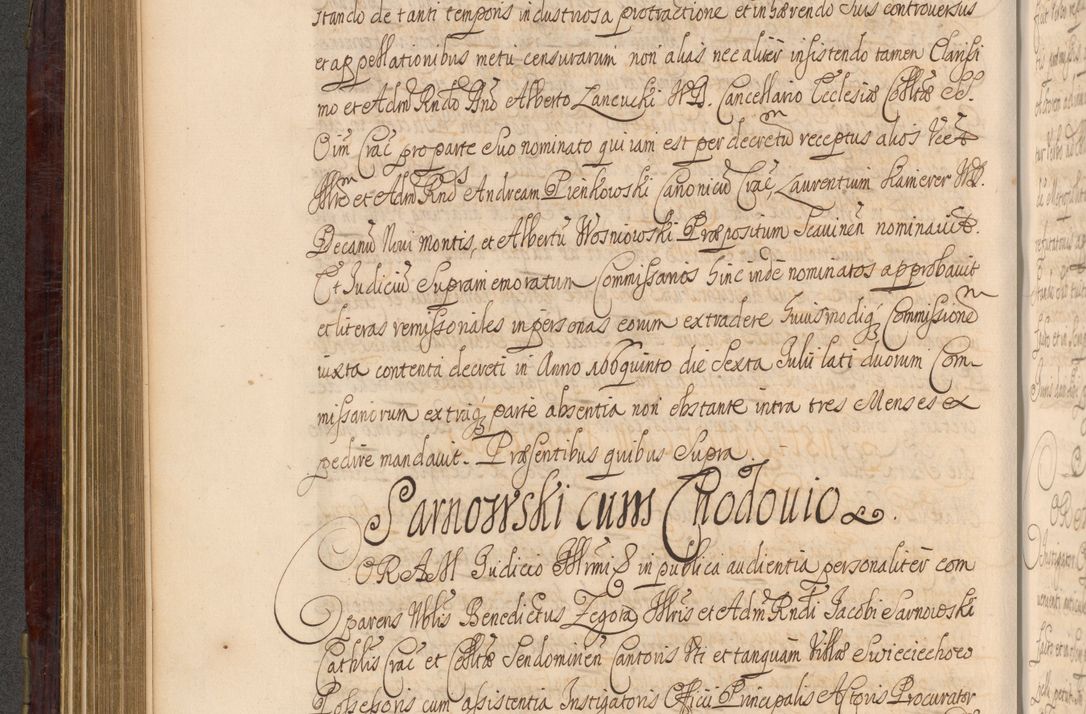 stando de tanti temporis industriosa protractione et inhærendo suis controversus
et appellationibus metu censurarum non alias nec aliter insistendo tamen Clarissi
mo et Adm Rndo Dno Alberto Lancucki JVD. Cancellario Ecclesiæ Colltæ SS.
Oim Crac pro parte suo nominato qui iam est per decretum receptus alios
Illre et Adm Rnds Andream Pienkowski Canonicu Crac, Laurentium Kamerer JVD.
Decanu Novi montis, et Albertu Wosniowski Præpositum Scavinen nominavit.
Et Judiciu supramemoratum Commissarios hinc inde nominatos approbavit
et literas remissoriales in personas eorum extradere huiusmodiq Commissione
iuxta contenta decreti in Anno 166quinto die Sexta Julii lati duorum Com
missariorum extraq parte absentia non obstante intra tres Menses ex
pedire mandavit. Præsentibus quibus supra.
Sarnowski cum Chodouio.
CORAM Judicio Illrmi D in publica audientia personaliter com
parens Nblis Benedictus Zegota Illris et Adm Rndi Jacobi Sarnowski
Cathlis Crac et Colltæ Sendominen Cantoris Uti et tanquam Villæ Swieciechow
Possessoris cum assistentia Instigatoris Officii Principalis Actoris Procurator